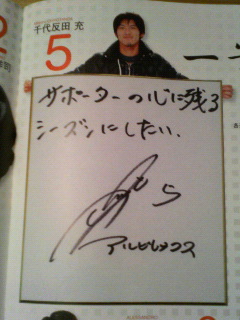 千代反田 充
5
サポーターの心に残る
シーズンにしたい、
5
アルビレックス